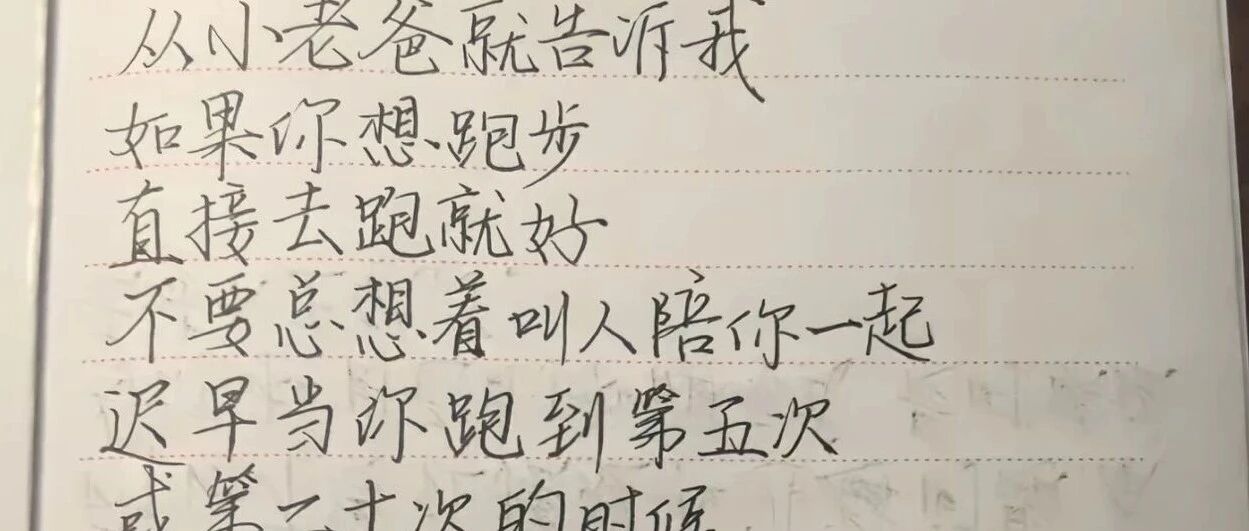 从小老爸就告诉我
如果你想跑步
直接去跑就好
不要总想着叫人陪你一起
迟早当你跑到第五次
或第二十次的时候